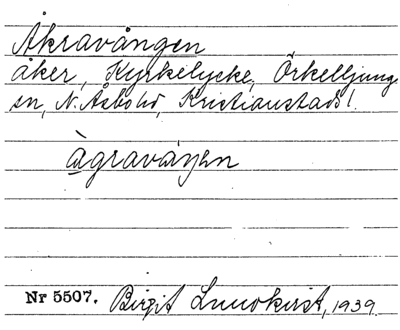 Åkravången
åker, Kyrkelycke, Örkelljunga
sn, N. Åsbo hd, Kristianstads l.
àgravaŋen
Nr 5507. Birgit Lundkvist, 1939.